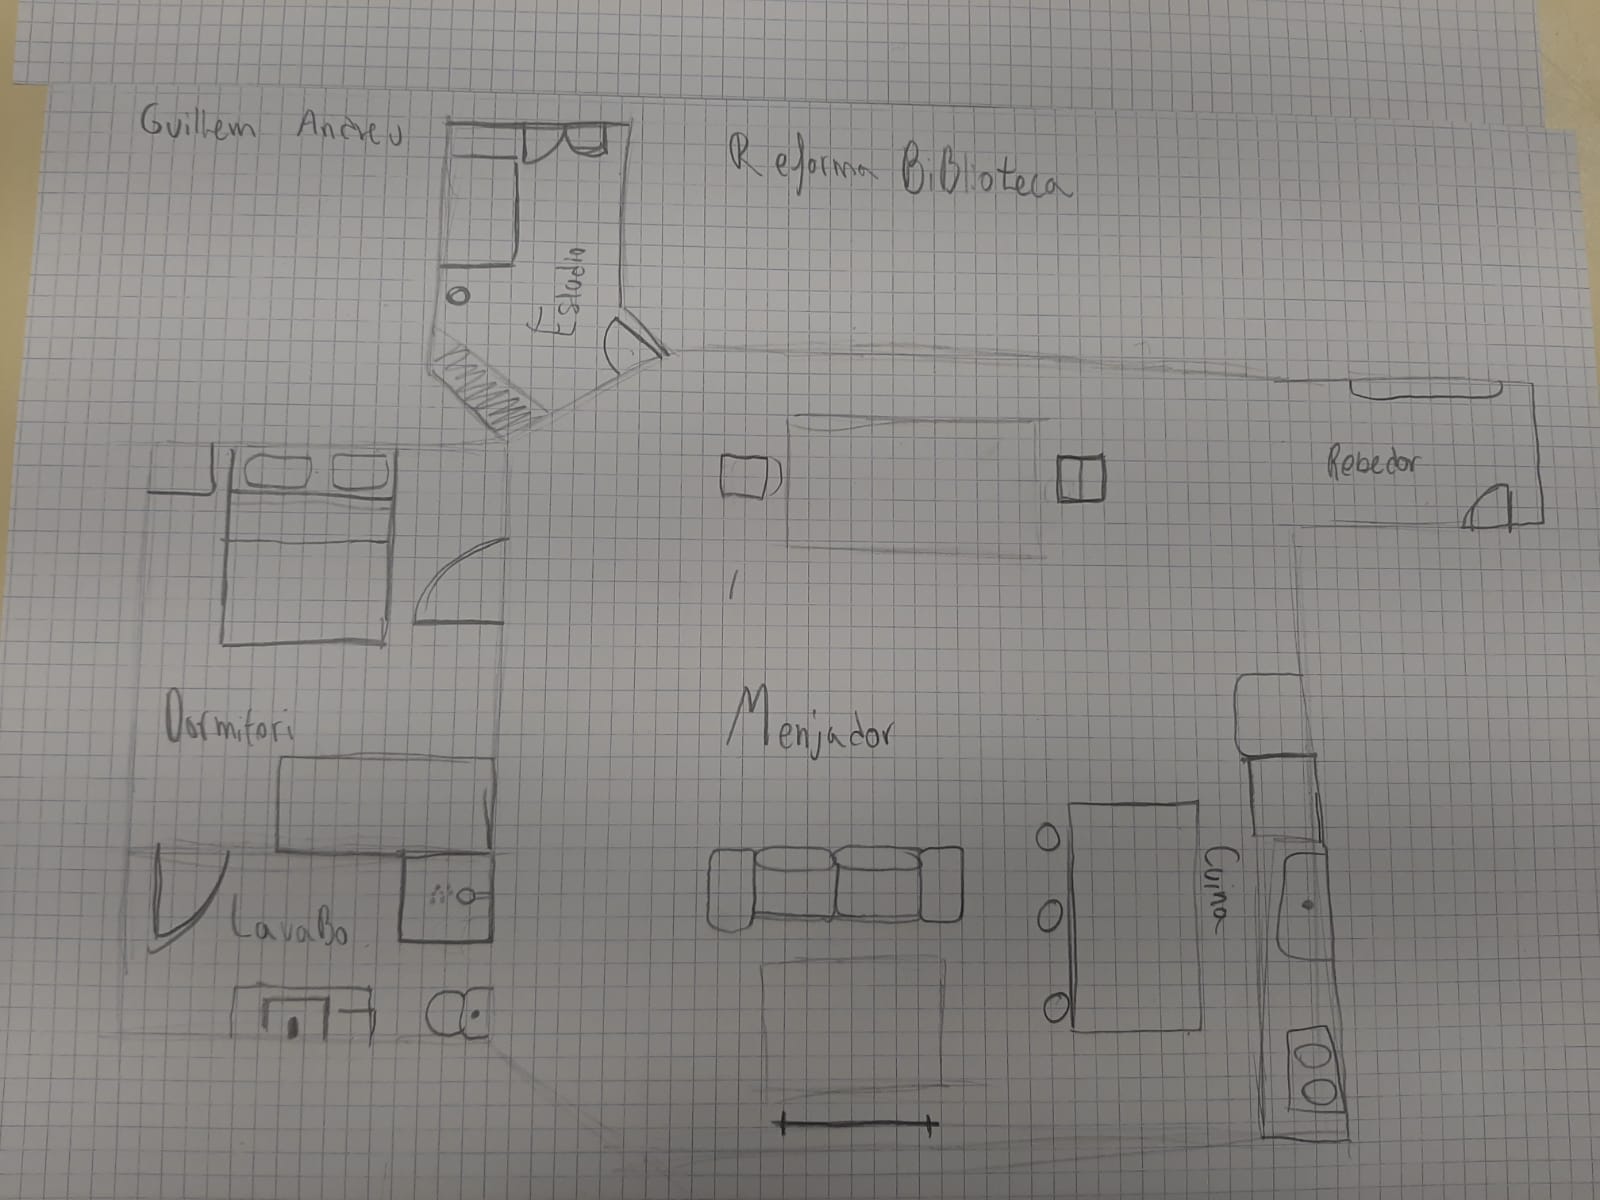 Guillem Andreu
Reforma BiBlioteca
Estudio
Rebedor
Dormitori
Menjador
Cuina
LavaBo